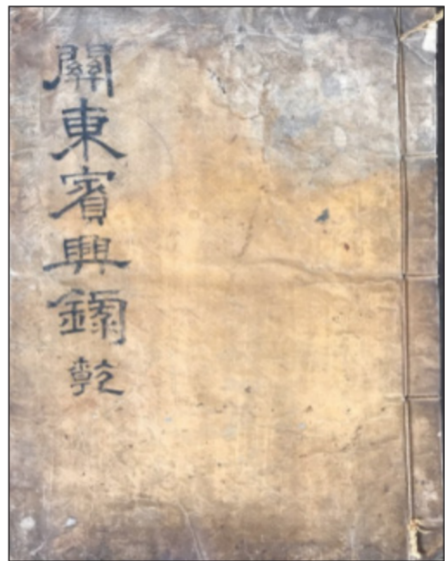 關東賓興錄 乾